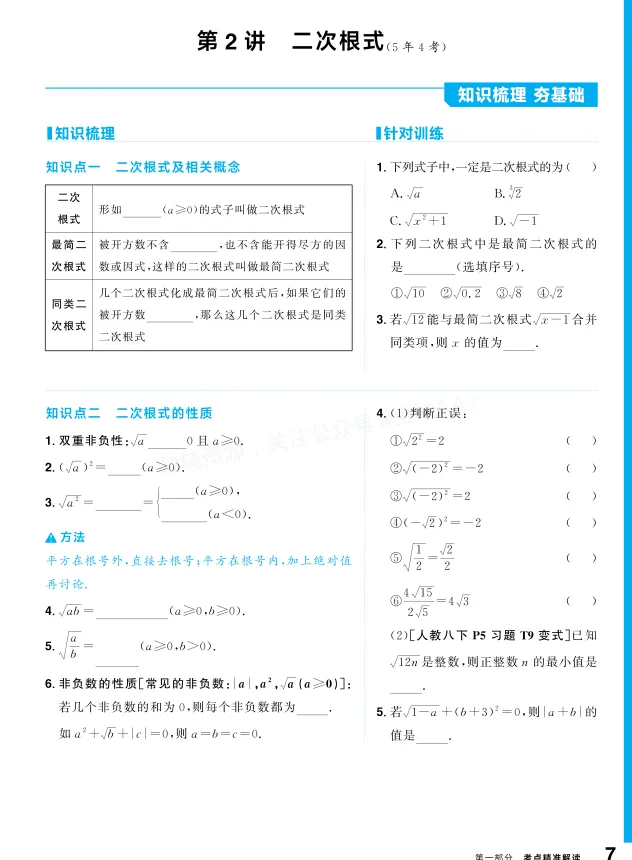 第 2 讲 二次根式(5 年 4 考)
知识梳理 夯基础
知识梳理
知识点一 二次根式及相关概念
二次
根式
形如______(a≥0)的式子叫做二次根式
最简二
次根式
被开方数不含________,也不含能开得尽方的因
数或因式,这样的二次根式叫做最简二次根式
同类二
次根式
几个二次根式化成最简二次根式后,如果它们的
被开方数________,那么这几个二次根式是同类
二次根式
针对训练
1. 下列式子中,一定是二次根式的为( )
A. √a B. ³√2
C. √(x²+1) D. √(-1)
2. 下列二次根式中是最简二次根式的
是________(选填序号).
①√10 ②√0.2 ③√8 ④√2
3. 若√12能与最简二次根式√(x-1)合并
同类项,则 x 的值为_____.
知识点二 二次根式的性质
1. 双重非负性:√a ______0 且 a≥0.
2. (√a)²=_____(a≥0).
3. √a²=_______={_____(a≥0),
_______(a<0).
方法
平方在根号外,直接去根号;平方在根号内,加上绝对值
再讨论.
4. √ab=___________(a≥0,b≥0).
5. √(a/b)=______(a≥0,b>0).
6. 非负数的性质[常见的非负数:|a|,a²,√a(a≥0)]:
若几个非负数的和为 0,则每个非负数都为_____.
如 a²+√b+|c|=0,则 a=b=c=0.
4. (1)判断正误:
①√2²=2 ( )
②√(-2)²=-2 ( )
③√(-2)²=2 ( )
④(-√2)²=-2 ( )
⑤√(1/2)=√2/2 ( )
⑥4√15/2√5=4√3 ( )
(2)[人教八下 P5 习题 T9 变式]已知
√12n是整数,则正整数 n 的最小值是
_____.
5. 若√(1-a)+(b+3)²=0,则|a+b|的
值是_____.
第一部分 考点精准解读 7